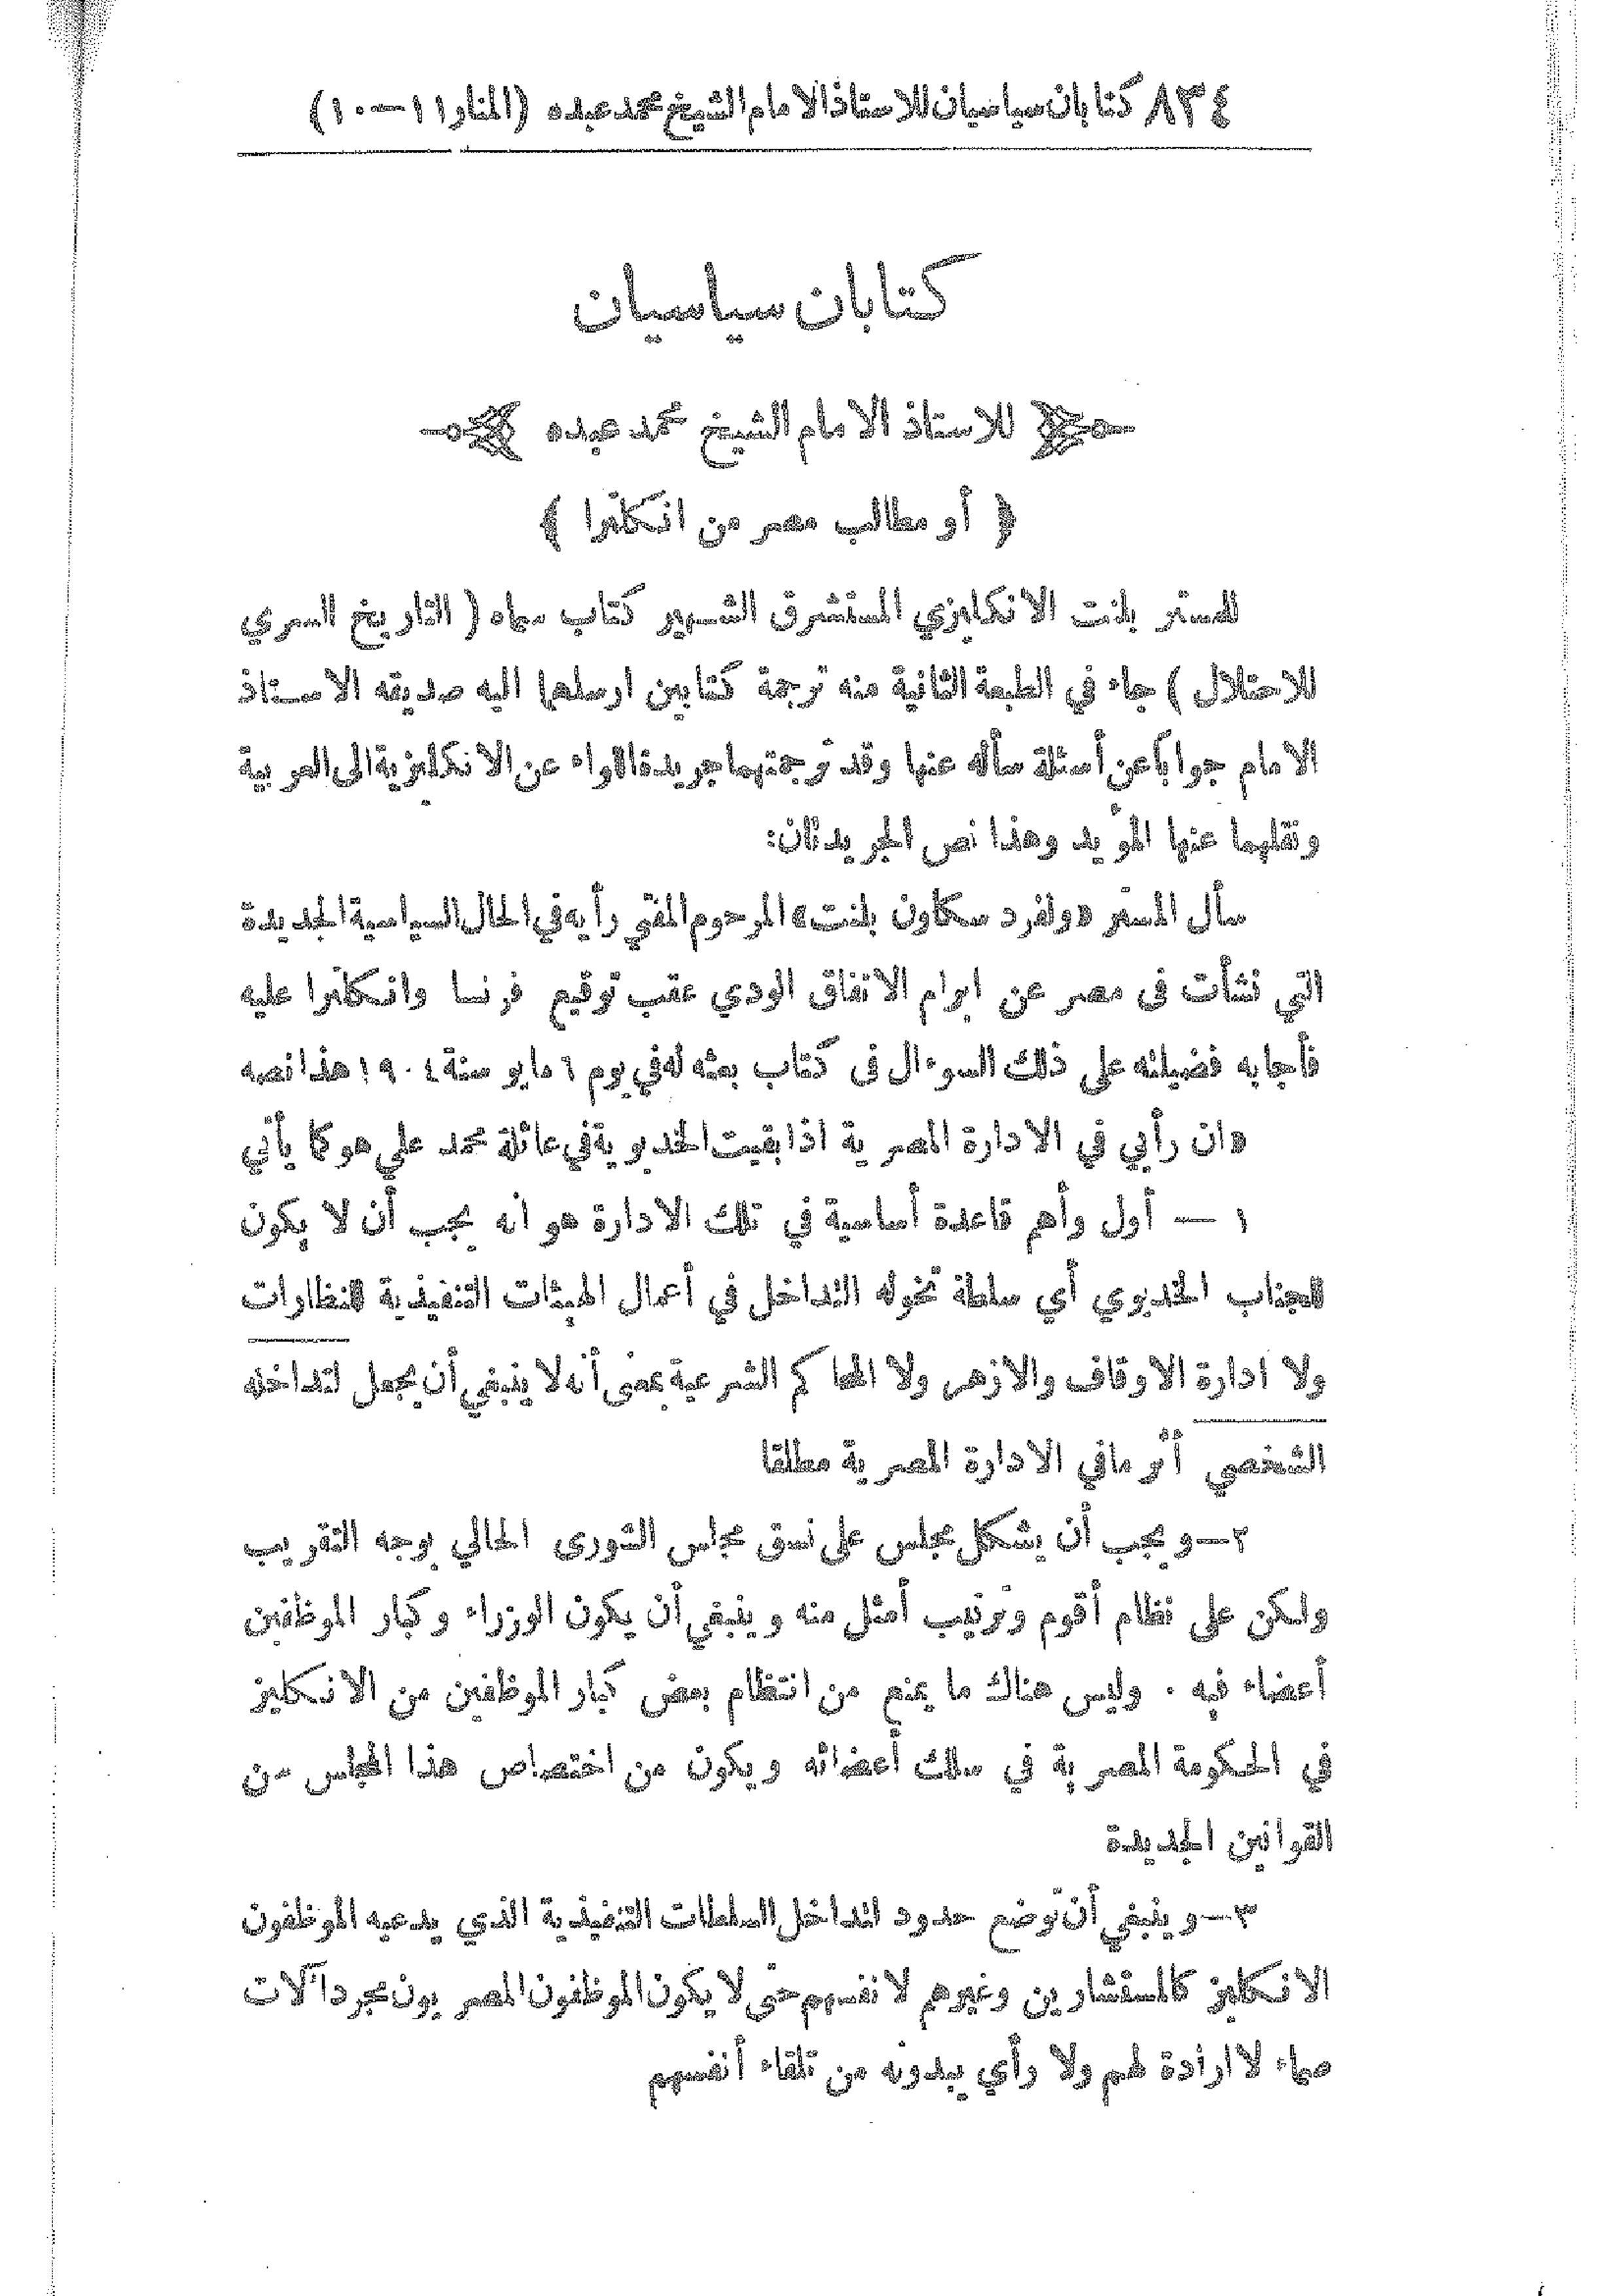 ٨٣٤ كتابان سياسيان للاستاذ الامام الشيخ محمد عبده (المنار ١١ — ١٠)
كتابان سياسيان
للاستاذ الامام الشيخ محمد عبده
﴿ أو مطالب مصر من انكلترا ﴾
للمستر بلنت الانكليزي المستشرق الشهير كتاب سماه ( التاريخ السري
للاحتلال ) جاء في الطبعة الثانية منه ترجمة كتابين ارسلهما اليه صديقه الاستاذ
الامام جوابًا عن أسئلة سأله عنها وقد ترجمتهما جريدة اللواء عن الانكليزية الى العربية
ونقلهما عنها المؤيد وهذا نص الجريدتان:
سأل المستر «ولفرد سكاون بلنت» المرحوم المفتي رأيه في الحال السياسية الجديدة
التي نشأت في مصر عن ابرام الاتفاق الودي عقب توقيع فرنسا وانكلترا عليه
فأجابه فضيلته على ذلك السوءال في كتاب بعثه له في يوم ٦ مايو سنة ١٩٠٤ هذا نصه
«ان رأيي في الادارة المصرية اذا بقيت الخديوية في عائلة محمد علي هو كما يأتي
١ — أول وأهم قاعدة أساسية في تلك الادارة هو انه يجب أن لا يكون
للجناب الخديوي أي سلطة تخوله التداخل في أعمال الهيئات التنفيذية للنظارات
ولا ادارة الاوقاف والازهر ولا المحاكم الشرعية بمعنى أنه لا ينبغي أن يجعل لتداخله
الشخصي أثر ما في الادارة المصرية مطلقا
٢ — ويجب أن يشكل مجلس على نسق مجلس الشورى الحالي بوجه التقريب
ولكن على نظام أقوم وترتيب أمثل منه وينبغي أن يكون الوزراء وكبار الموظفين
أعضاء فيه . وليس هناك ما يمنع من انتظام بعض كبار الموظفين من الانكليز
في الحكومة المصرية في سلك أعضائه ويكون من اختصاص هذا المجلس سن
القوانين الجديدة
٣ — وينبغي أن توضع حدود لتداخل السلطات التنفيذية الذي يدعيه الموظفون
الانكليز كالمستشارين وغيرهم لانفسهم حتى لا يكون الموظفون المصريون مجرد آلات
صماء لا ارادة لهم ولا رأي يبدونه من تلقاء أنفسهم